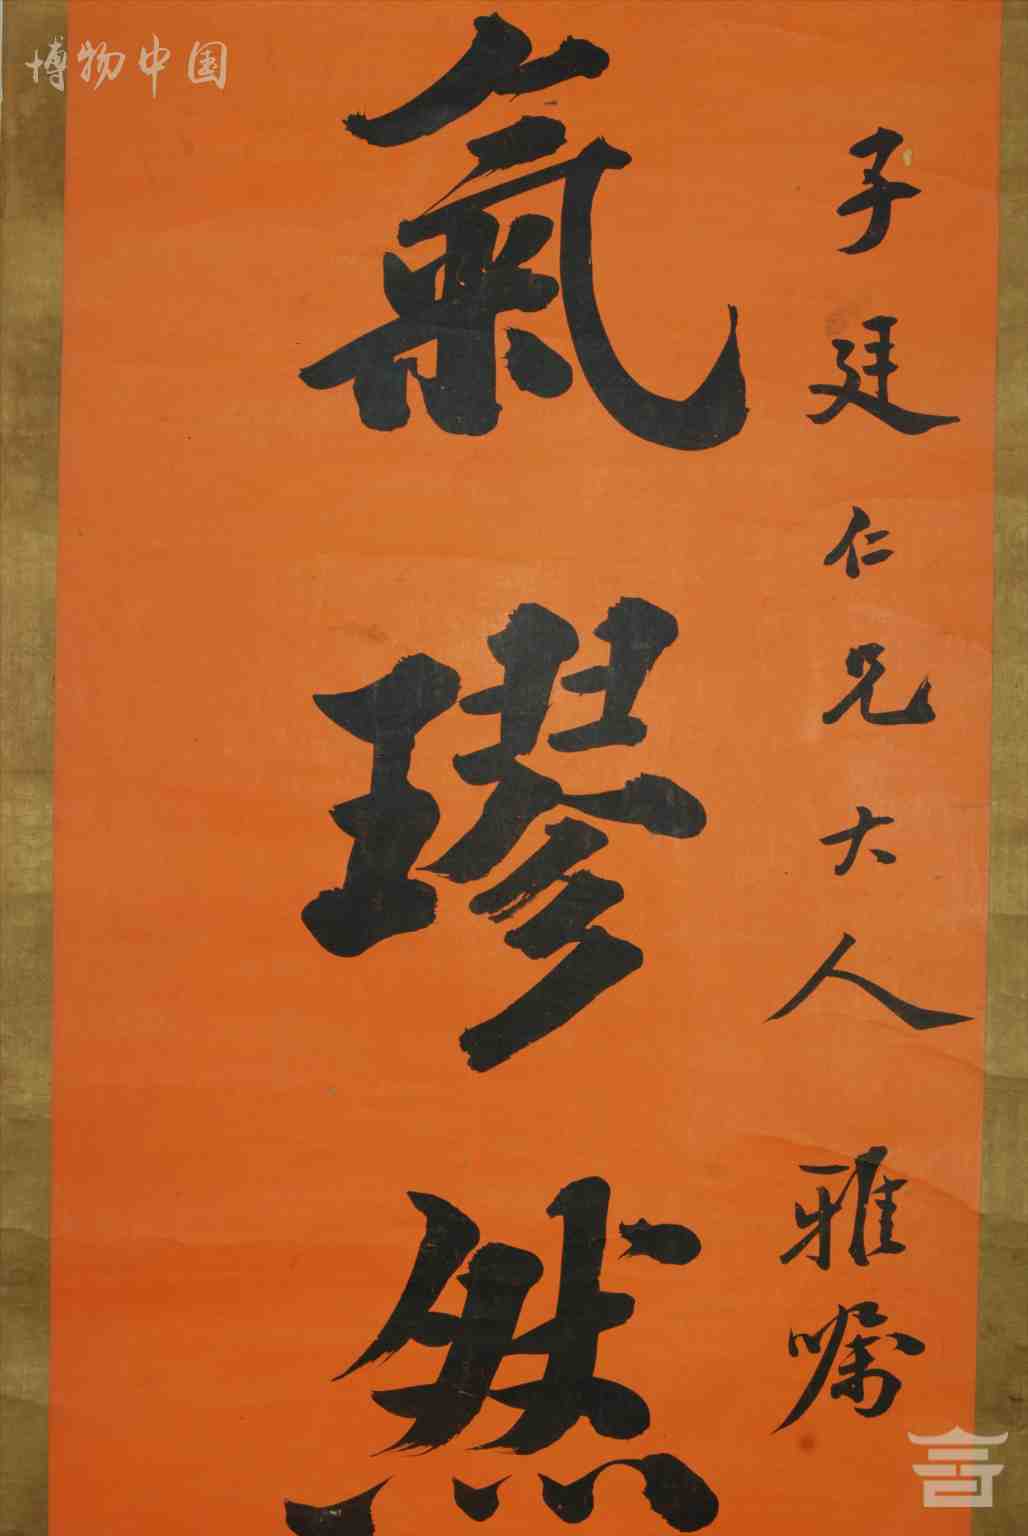 博物中国
子廷仁兄大人雅嘱
氣璆然